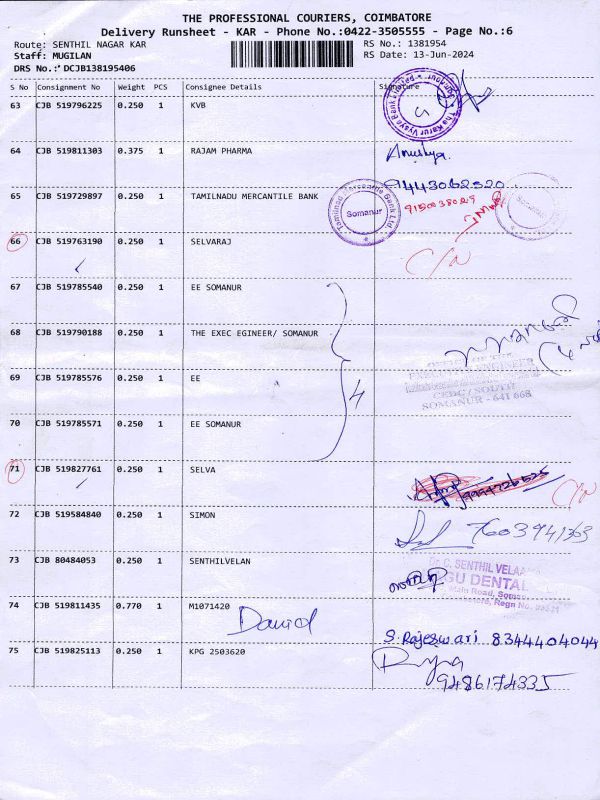 THE PROFESSIONAL COURIERS, COIMBATORE
Delivery Runsheet - KAR - Phone No.:0422-3505555 - Page No.:6
Route: SENTHIL NAGAR KAR
RS No.: 1381954
Staff: MUGILAN
RS Date: 13-Jun-2024
DRS No.: DCJB138195406
S No Consignment No Weight PCS Consignee Details Signature
63 CJB 519796225 0.250 1 KVB
64 CJB 519811303 0.375 1 RAJAM PHARMA Anushya.
9443062520
65 CJB 519729897 0.250 1 TAMILNADU MERCANTILE BANK
Tamilnad Mercantile Bank Ltd.
Somanur
9150038029
66 CJB 519763190 0.250 1 SELVARAJ C/N
67 CJB 519785540 0.250 1 EE SOMANUR
68 CJB 519790188 0.250 1 THE EXEC EGINEER/ SOMANUR
OFFICE OF THE
ENGINEER
69 CJB 519785576 0.250 1 EE 4
CEDC / SOUTH
SOMANUR - 641 668
70 CJB 519785571 0.250 1 EE SOMANUR
71 CJB 519827761 0.250 1 SELVA C/N
72 CJB 519584840 0.250 1 SIMON 7603941363
73 CJB 80484053 0.250 1 SENTHILVELAN
Dr. C. SENTHIL VELA
DENTAL
Main Road,
Regn No.
74 CJB 519811435 0.770 1 M1071420 David
S. Rajeswari 8344404044
75 CJB 519825113 0.250 1 KPG 2503620
9486174335